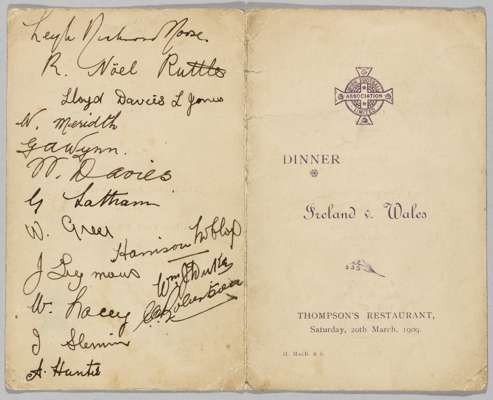 Leigh Richmond Roose
R. Nöel Ruttle
Lloyd Davies L Jones
W. Meridith
GAWynn.
W. Davies
G Latham
W. Greer
Harrison McClop
J Seymour
Wm J Durke
W. Lacey
J Slemin
A. Hunter
IRISH FOOTBALL
ASSOCIATION
LIMITED
DINNER
Ireland v. Wales
THOMPSON'S RESTAURANT,
Saturday, 20th March, 1909.